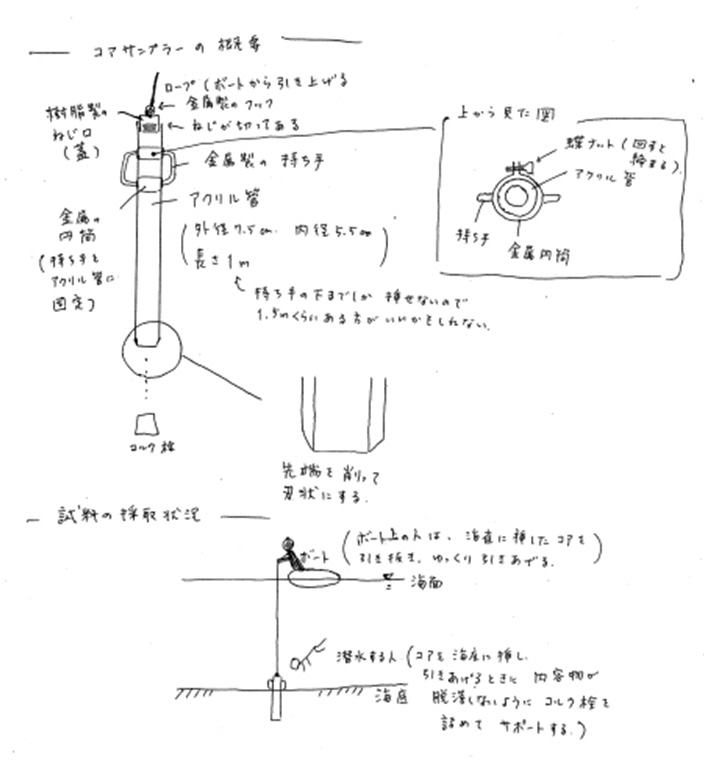 コアサンプラーの概要
ロープ(ボートから引き上げる
金属製のフック
樹脂製の
ねじ口
(蓋)
ねじが切ってある
金属製の持ち手
アクリル管
(外径7.5cm. 内径5.5cm
長さ1m)
持ち手の下までしか挿せないので
1.5mくらいある方がいいかもしれない.
金属の
内筒
(持ち手を
アクリル管に
固定)
上から見た図
蝶ナット(回すと
締まる)
アクリル管
持ち手
金属内筒
コルク栓
先端を削って
刃状にする.
試料の採取状況
ボート
(ボート上の人は、海底に挿したコアを
引き抜き、ゆっくり引きあげる.)
海面
潜水する人(コアを海底に挿し、
引きあげるときに内容物が
海底
脱落しないようにコルク栓を
詰めてサポートする.)